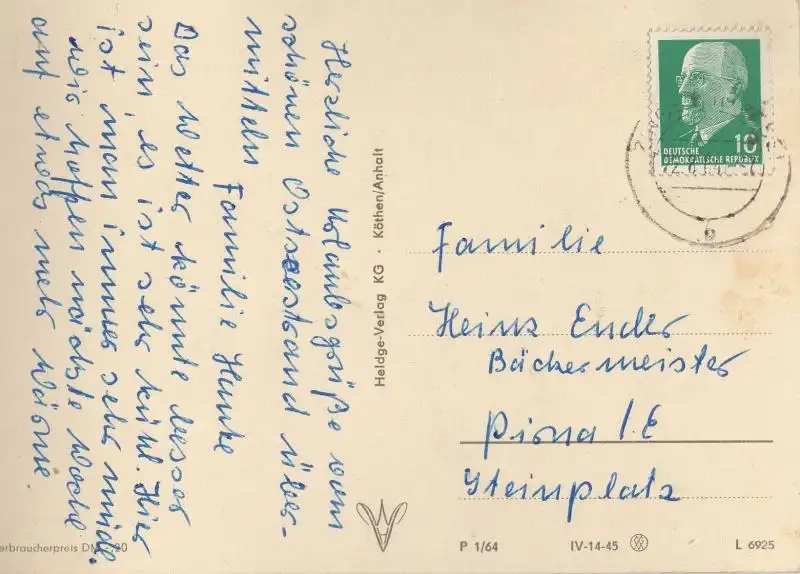 Herzliche Urlaubsgrüße vom
schönen Ostseestrand über-
mitteln
Familie Hanke
Das Wetter könnte besser
sein, es ist sehr kühl. Hier
ist man immer sehr müde.
Wir hoffen nächste Woche
auf etwas mehr Wärme.
Heldge-Verlag KG · Köthen/Anhalt
DEUTSCHE
DEMOKRATISCHE REPUBLIK
10
Familie
Heinz Ender
Bäckermeister
Pirna / E
Steinplatz
erbraucherpreis DM 20
P 1/64
IV-14-45
L 6925